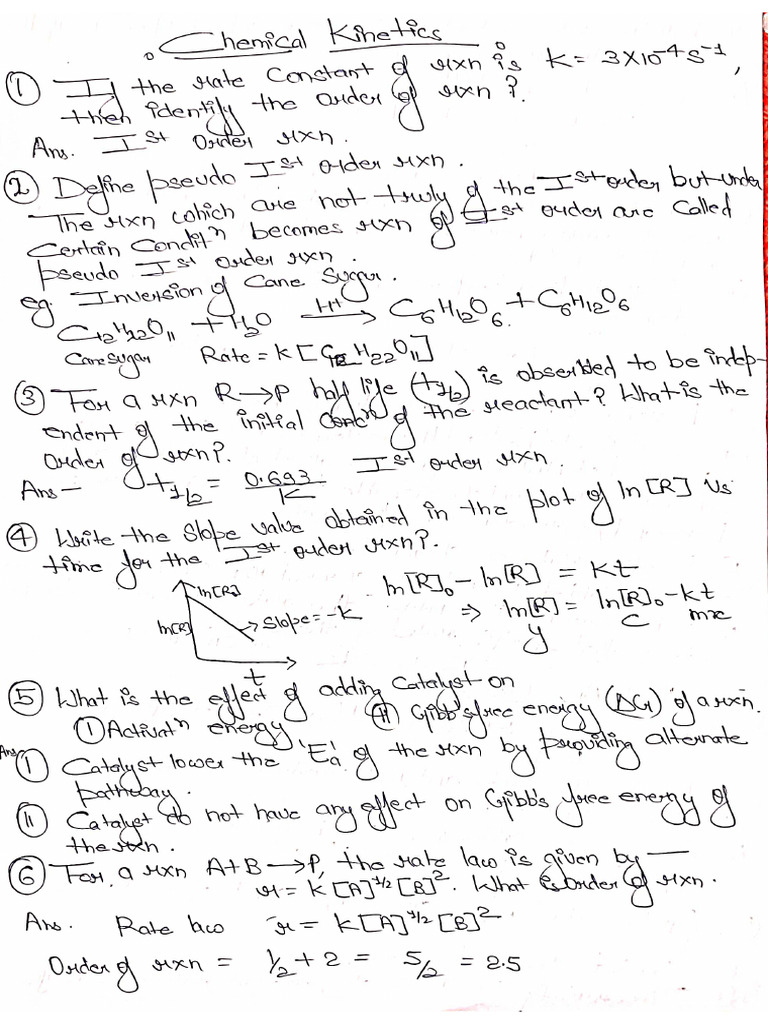 Chemical Kinetics
① If the rate Constant of rxn is K = 3×10⁻⁴ S⁻¹,
then identify the Order of rxn?
Ans. Iˢᵗ Order rxn.
② Define pseudo Iˢᵗ order rxn.
The rxn which are not truly of the Iˢᵗ order but under
Certain Conditⁿ becomes rxn of Iˢᵗ order are Called
pseudo Iˢᵗ order rxn.
eg. Inversion of Cane Sugar.
C₁₂H₂₂O₁₁ + H₂O —H⁺→ C₆H₁₂O₆ + C₆H₁₂O₆
Cane Sugar Rate = K [C₁₂H₂₂O₁₁]
③ For a rxn R → P half life (t₁/₂) is observed to be indep-
endent of the initial Concⁿ of the reactant? What is the
Order of rxn?
Ans – t₁/₂ = 0.693/K Iˢᵗ order rxn.
④ Write the Slope value obtained in the plot of ln [R] Vs
time for the Iˢᵗ order rxn?
ln[R]₀ – ln[R] = Kt
⇒ ln[R] = ln[R]₀ – kt
y C mx
ln[R]
ln[R] Slope = –K
t
⑤ What is the effect of adding Catalyst on
① Activatⁿ energy ② Gibb's free energy (ΔG) of a rxn.
Ans ① Catalyst lower the 'Ea' of the rxn by providing alternate
pathway.
② Catalyst do not have any effect on Gibb's free energy of
the rxn.
⑥ For a rxn A + B → P, the rate law is given by —
r = K [A]^1/2 [B]². What is Order of rxn.
Ans. Rate law r = K [A]^1/2 [B]²
Order of rxn = 1/2 + 2 = 5/2 = 2.5